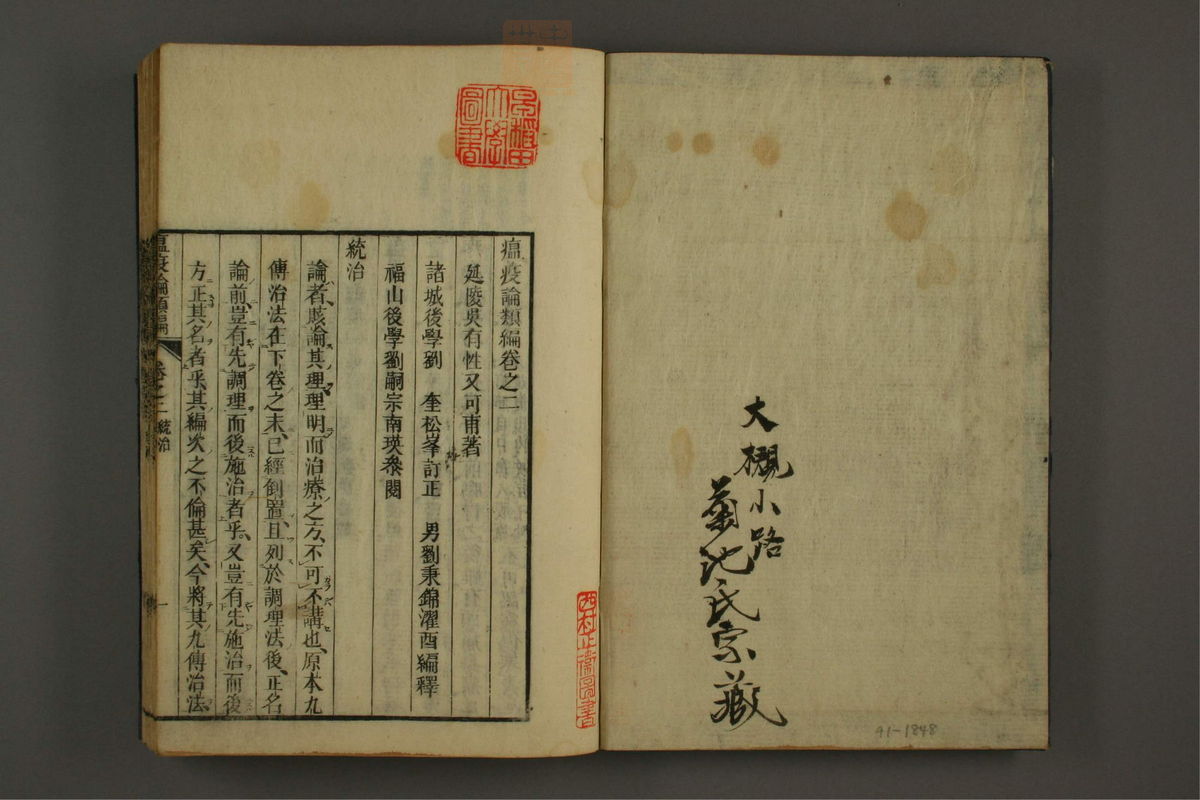 大概小路
菊池氏宗藏
91-1848
早稲田
大學
圖書
瘟疫論類編卷之二
延陵吳有性又可甫著
諸城後學劉 奎松峯訂正 男劉秉錦濯西編釋
福山後學劉嗣宗南瑛叅閱
統治
論者、該論其理理明而治療之方、不可不講也、原本九
傳治法在下卷之末、已經倒置、且列於調理法後、正名
論前、豈有先調理而後施治者乎。又豈有先施治而後
方正其名者乎、其編次之不倫甚矣、今將其九傳治法、
瘟疫論類編 卷之二 統治 一